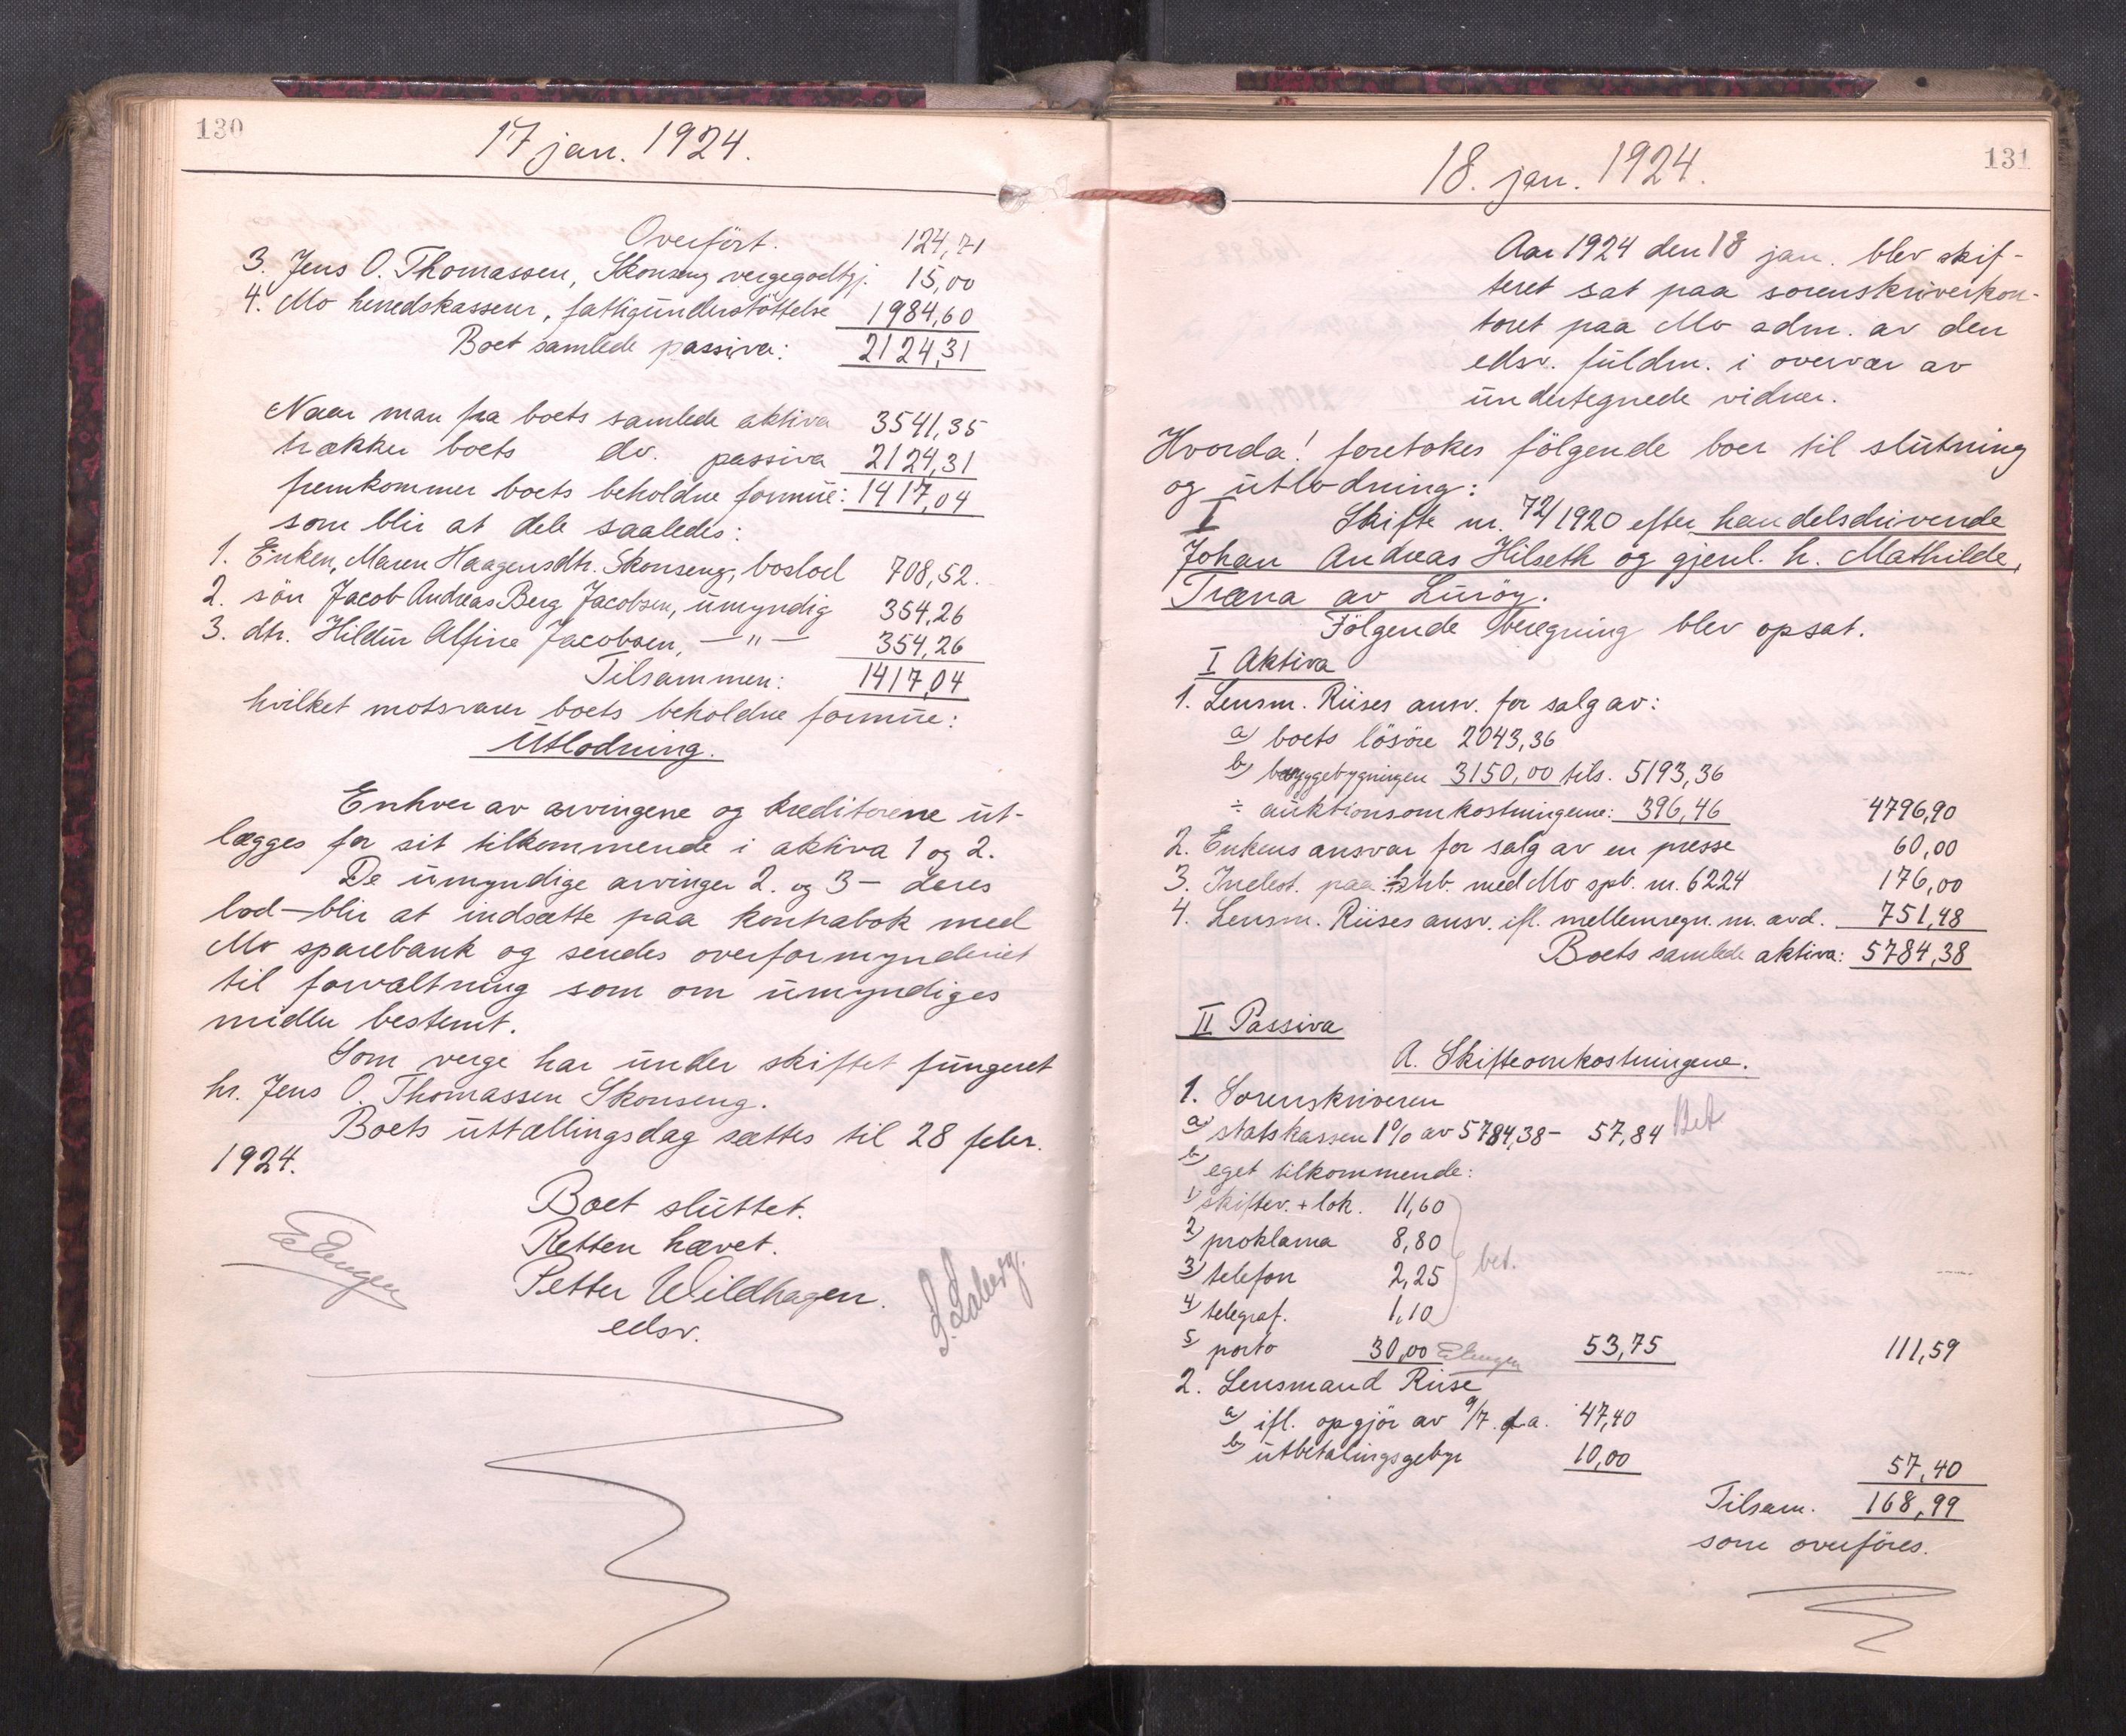 130
17 jan. 1924.
Overført. 124,71
3. Jens O. Thomassen, Skonseng vergegodtgj. 15,00
4. Mo herredskasserer, fattigunderstøttelse 1984,60
Boet samlede passiva: 2124,31
Naar man fra boets samlede aktiva 3541,35
trækker boets do. passiva 2124,31
fremkommer boets beholdne formue: 1417,04
som blir at dele saaledes:
1. Enken, Maren Haagensdtr. Skonseng, boslod 708,52.
2. søn Jacob Andreas Berg Jacobsen, umyndig 354,26
3. dtr. Hildur Alfine Jacobsen, —"— 354,26
Tilsammen: 1417,04
hvilket motsvarer boets beholdne formue:
Utlodning.
Enhver av arvingene og kreditorene ut-
lægges for sit tilkommende i aktiva 1 og 2.
De umyndige arvinger 2. og 3 – deres
lod – blir at indsætte paa kontrabok med
Mo sparebank og sendes overformynderiet
til forvaltning som om umyndiges
midler bestemt.
Som verge har under skiftet fungeret
hr. Jens O. Thomassen Skonseng.
Boets uttællingsdag sættes til 28 febr.
1924.
Boet sluttet.
Retten hævet.
Petter Wildhagen.
edsv.
131
18. jan. 1924.
Aar 1924 den 18 jan. blev skif-
teret sat paa sorenskriverkon-
toret paa Mo adm. av den
edsv. fuldm. i overvær av
undertegnede vidner.
Hvorda! foretokes følgende boer til slutning
og utlodning:
I Skifte nr. 72/1920 efter handelsdrivende
Johan Andreas Hilseth og gjenl. h. Mathilde,
Træna av Lurøy.
Følgende beregning blev opsat.
I Aktiva
1. Lensm. Riises ansv. for salg av:
a) boets løsøre 2043,36
b) bryggebygningen 3150,00 tils. 5193,36
÷ auktionsomkostningene: 396,46 4796,90
2. Enkens ansvar for salg av en presse 60,00
3. Indest. paa ktrb. med Mo spb. nr. 6224 176,00
4. Lensm. Riises ansv. ifl. mellemregn. m. avd. 751,48
Boets samlede aktiva: 5784,38
II Passiva
A. Skifteomkostningene.
1. Sorenskriveren
a) statskassen 1% av 5784,38 – 57,84 Bet
b) eget tilkommende:
1) skiftev. + lok. 11,60
2) proklama 8,80
3) telefon 2,25 bet.
4) telegraf. 1,10
5 porto 30,00 53,75 111,59
2. Lensmand Riise
a) ifl. opgjør av 9/7. f.a. 47,40
b) utbetalingsgebyr 10,00 57,40
Tilsam. 168,99
som overføres.